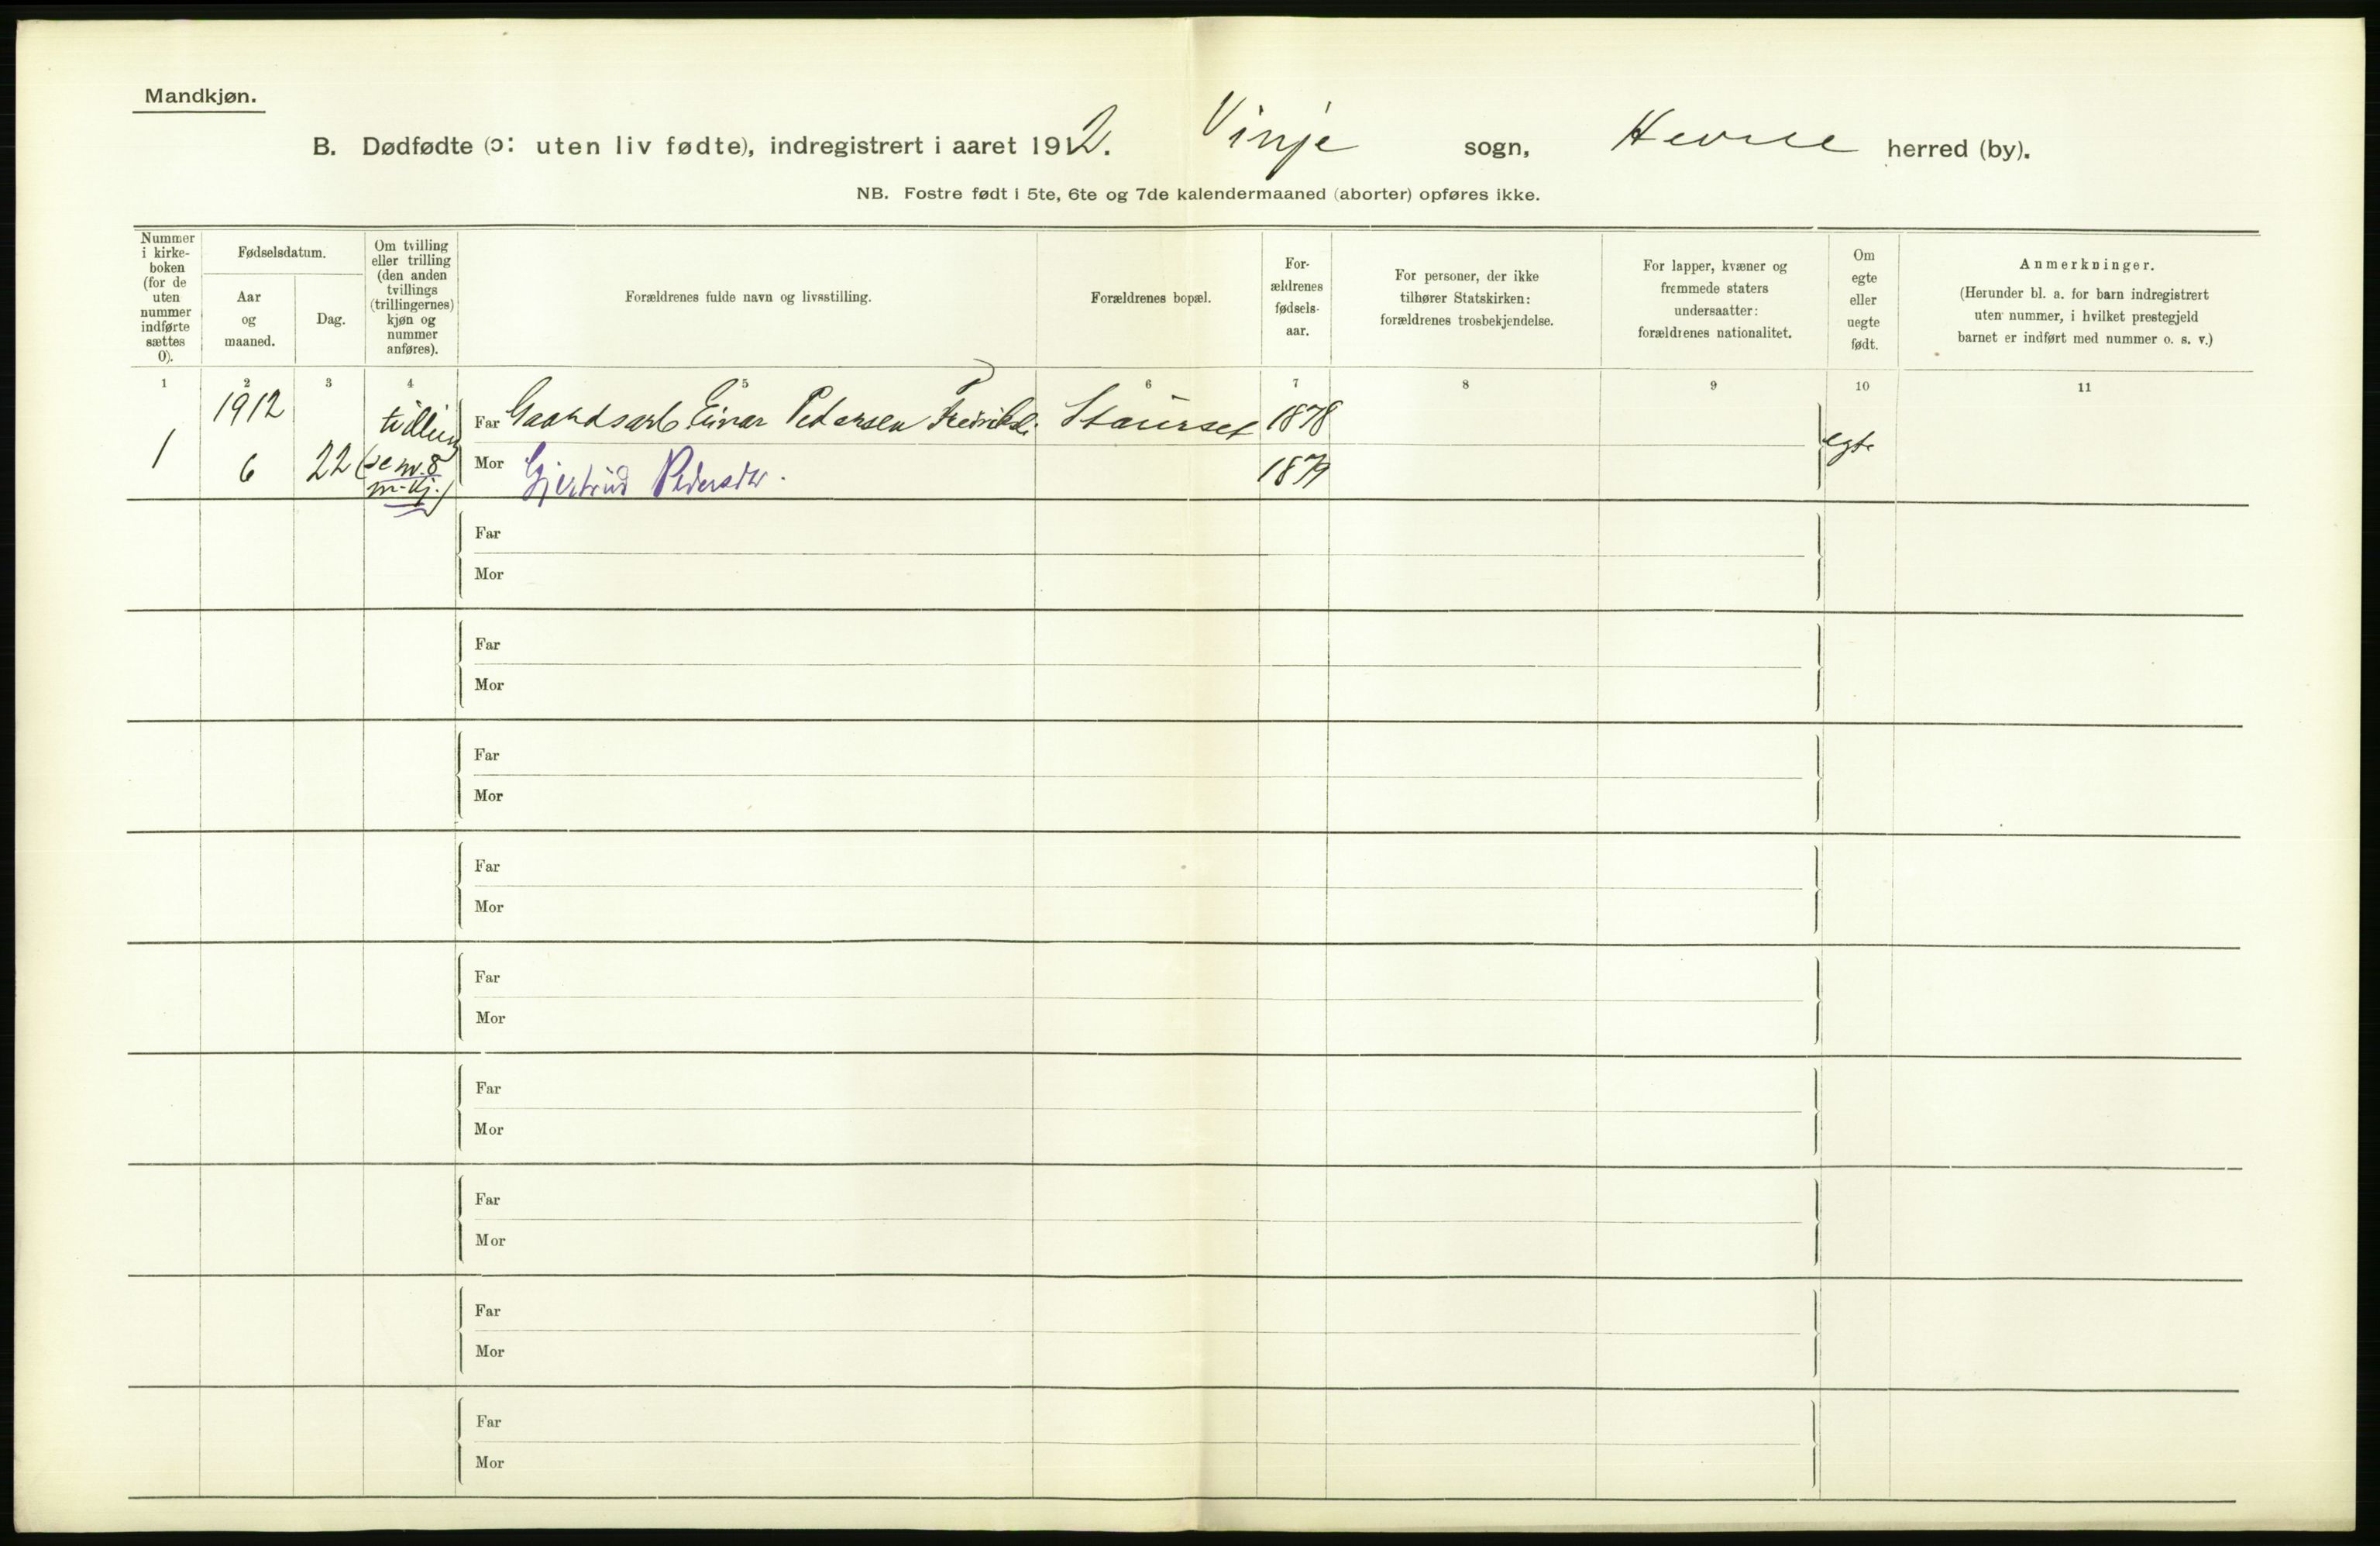 Mandkjøn.
B. Dødfødte (ɔ: uten liv fødte), indregistrert i aaret 1912. Vinje sogn, Hevne herred (by).
NB. Fostre født i 5te, 6te og 7de kalendermaaned (aborter) opføres ikke.
Nummer
i kirke-
boken
(for de
uten
nummer
indførte
sættes
0).
Fødselsdatum.
Aar
og
maaned.
Dag.
Om tvilling
eller trilling
(den anden
tvillings
(trillingernes)
kjøn og
nummer
anføres).
Forældrenes fulde navn og livsstilling.
Forældrenes bopæl.
For-
ældrenes
fødsels-
aar.
For personer, der ikke
tilhører Statskirken:
forældrenes trosbekjendelse.
For lapper, kvæner og
fremmede staters
undersaatter:
forældrenes nationalitet.
Om
egte
eller
uegte
født.
Anmerkninger.
(Herunder bl. a. for barn indregistrert
uten nummer, i hvilket prestegjeld
barnet er indført med nummer o. s. v.)
1 2 3 4 5 6 7 8 9 10 11
1912
1 6 22
(se nr. 8
m.kj.)
Far Gaardsarb. Einar Pedersen Staurset 1878
Mor Gjertrud Pedersdtr. 1879
egte
Far
Mor
Far
Mor
Far
Mor
Far
Mor
Far
Mor
Far
Mor
Far
Mor
Far
Mor
Far
Mor